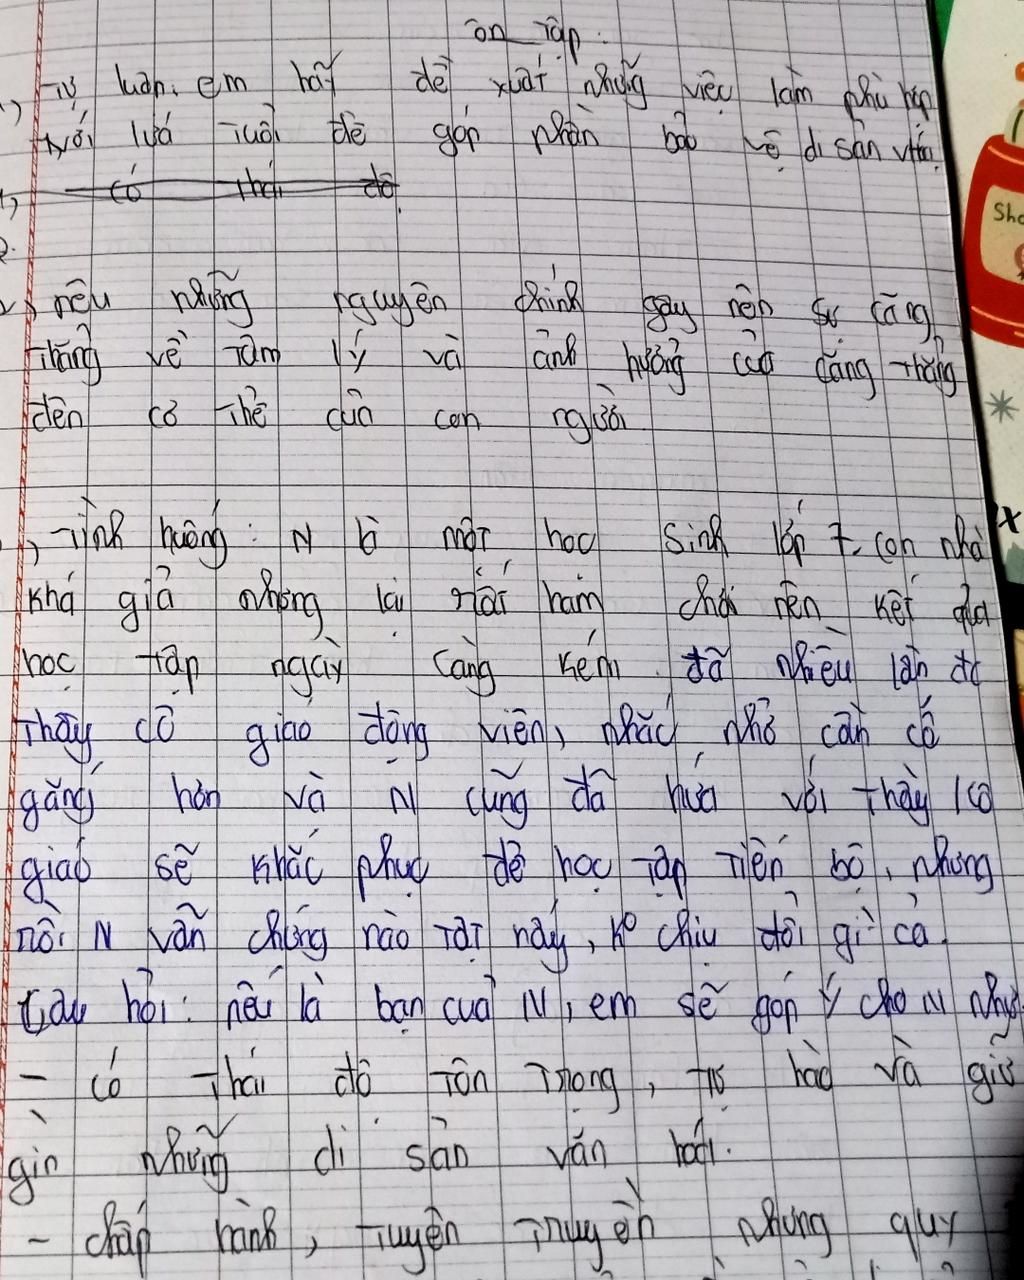 ôn tập.
1, Tự luận. em hãy đề xuất những việc làm phù hợp
với lứa tuổi để góp phần bảo vệ di sản văn
1, có thái độ
2.
2, nêu những nguyên chính gây nên sự căng
thẳng về tâm lý và ảnh hưởng của căng thẳng
đến cơ thể của con người.
, Tình huống: N là một học sinh lớp 7. con nhà
khá giả nhưng lại rất ham chơi nên kết quả
học tập ngày càng kém. đã nhiều lần đc
Thầy cô giáo động viên, nhắc nhở cần cố
gắng hơn và N cũng đã hứa với thầy/cô
giáo sẽ khắc phục để học tập tiến bộ, nhưng
rồi N vẫn chứng nào tật nấy, ko chịu đổi gì cả.
Câu hỏi: nếu là bạn của N, em sẽ góp ý cho N như
- có thái độ tôn trọng, tự hào và giữ
gìn những di sản văn hoá.
- chấp hành, tuyên truyền những quy
Sho
x